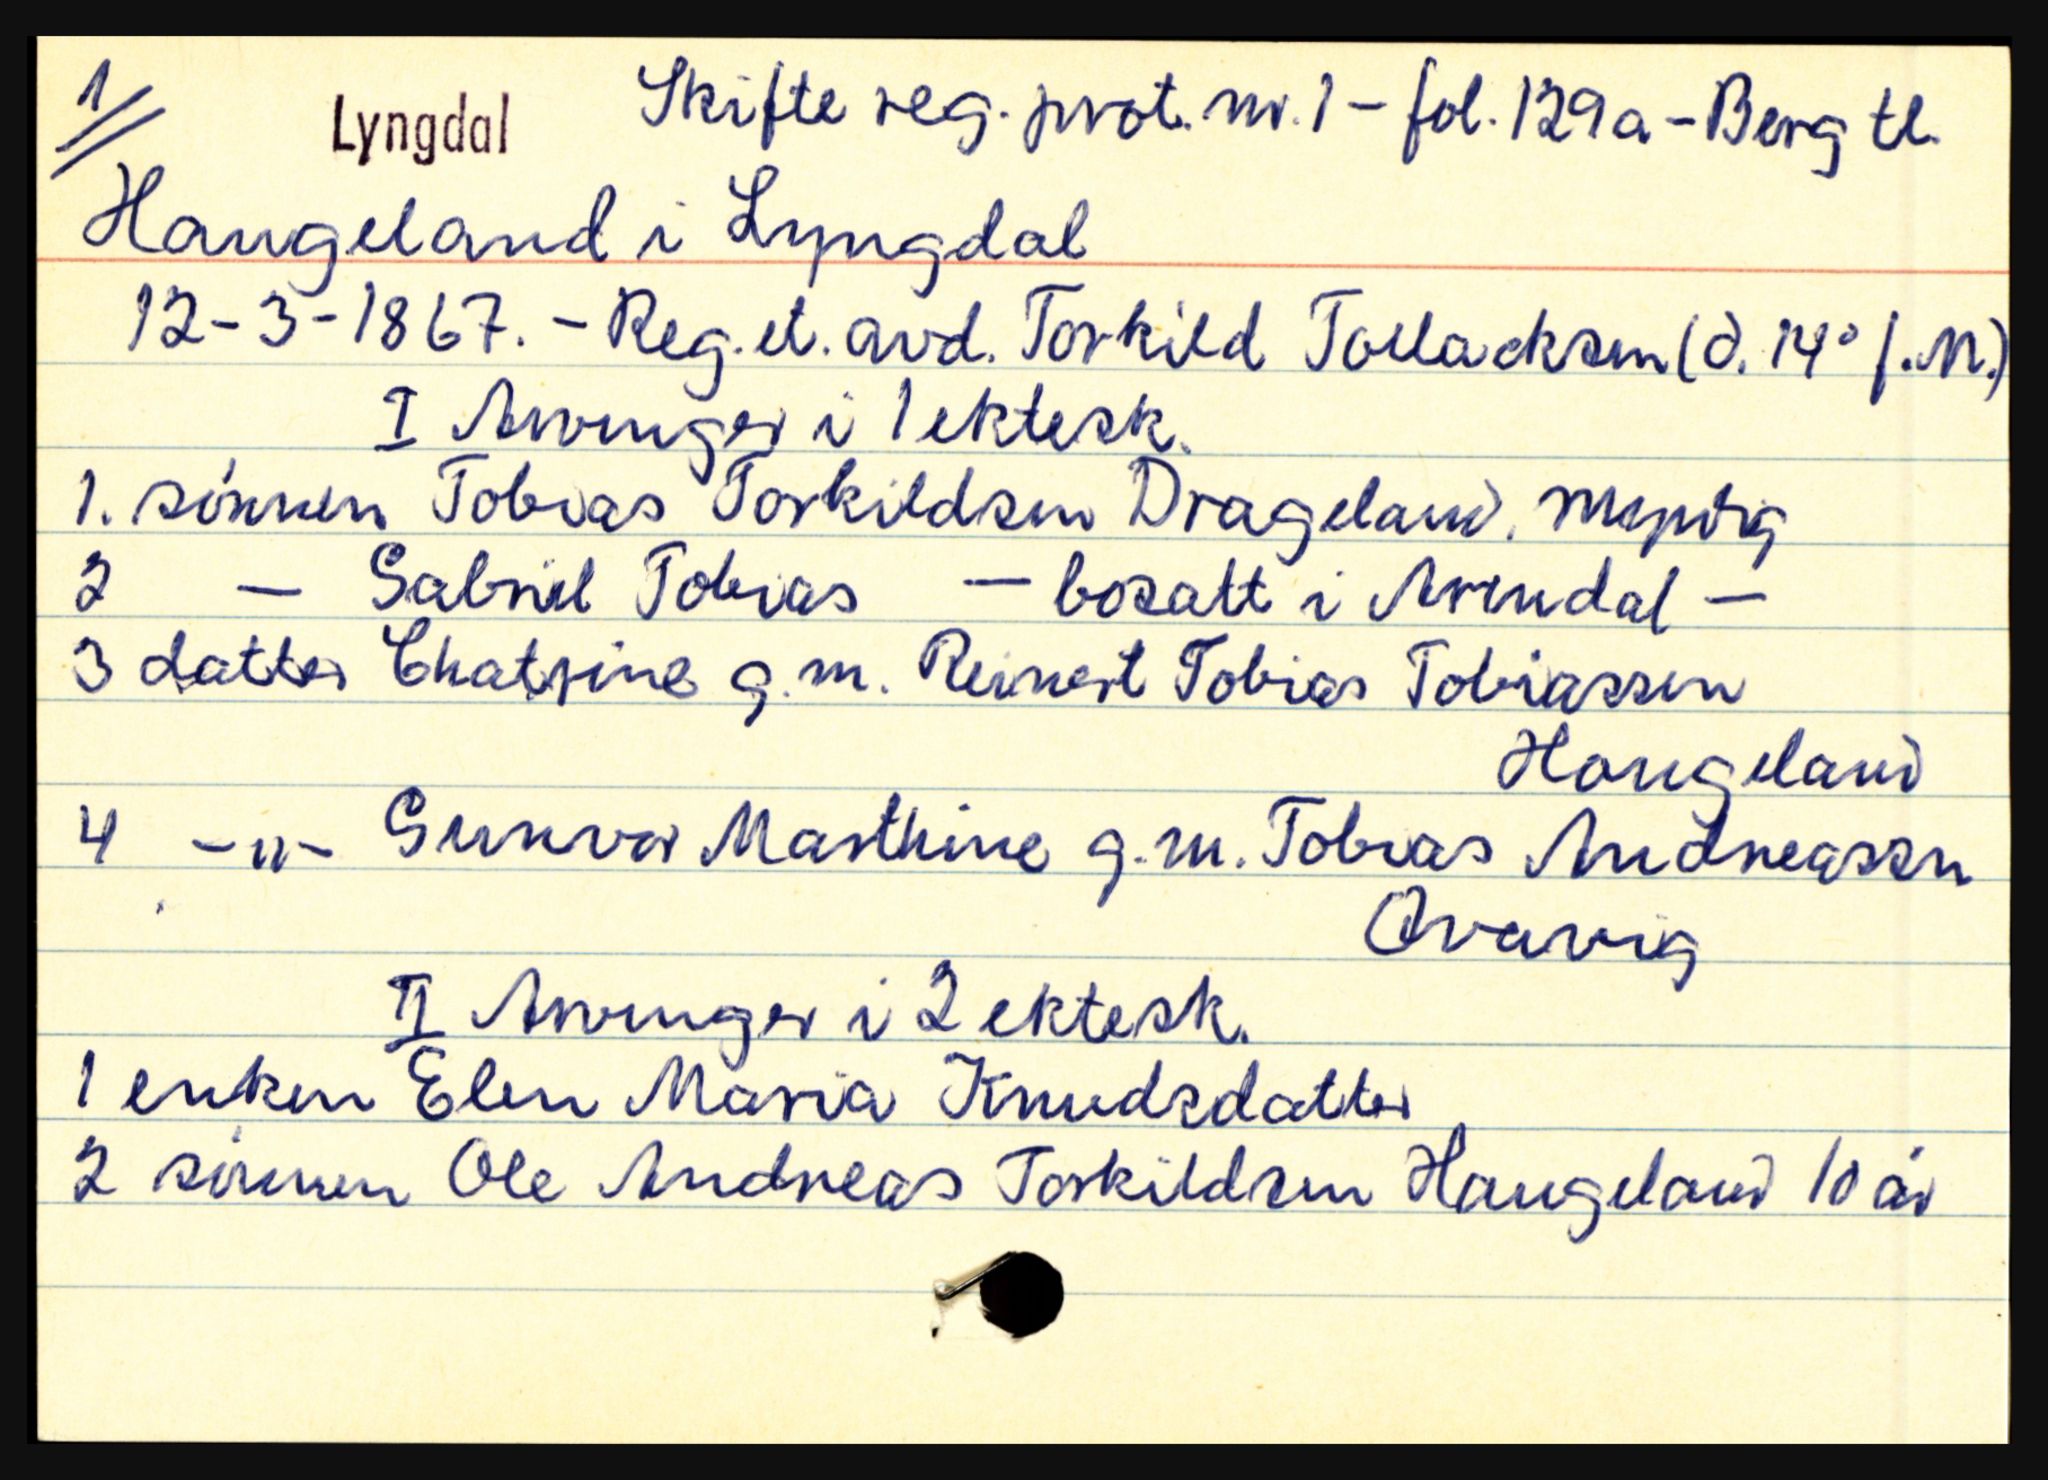 1/
Lyngdal Skifte reg. prot. nr. 1 - fol. 129a - Berg tl.
Haugeland i Lyngdal
12-3-1867. - Reg. et. avd. Torkild Tollacksen (d. 14° f.M.)
I Arvinger i 1 ektesk.
1. sönnen Tobias Torkildsen Drageland, myndig
2 — Gabriel Tobias — bosatt i Arendal —
3 datter Chatrine g.m. Reinert Tobias Tobiassen
Haugeland
4 -"- Gunvor Marthine g.m. Tobias Andreassn
Qvavig
II Arvinger i 2 ektesk.
1 enken Elen Maria Knudsdatter
2 sönnen Ole Andreas Torkildsen Haugeland 10 år